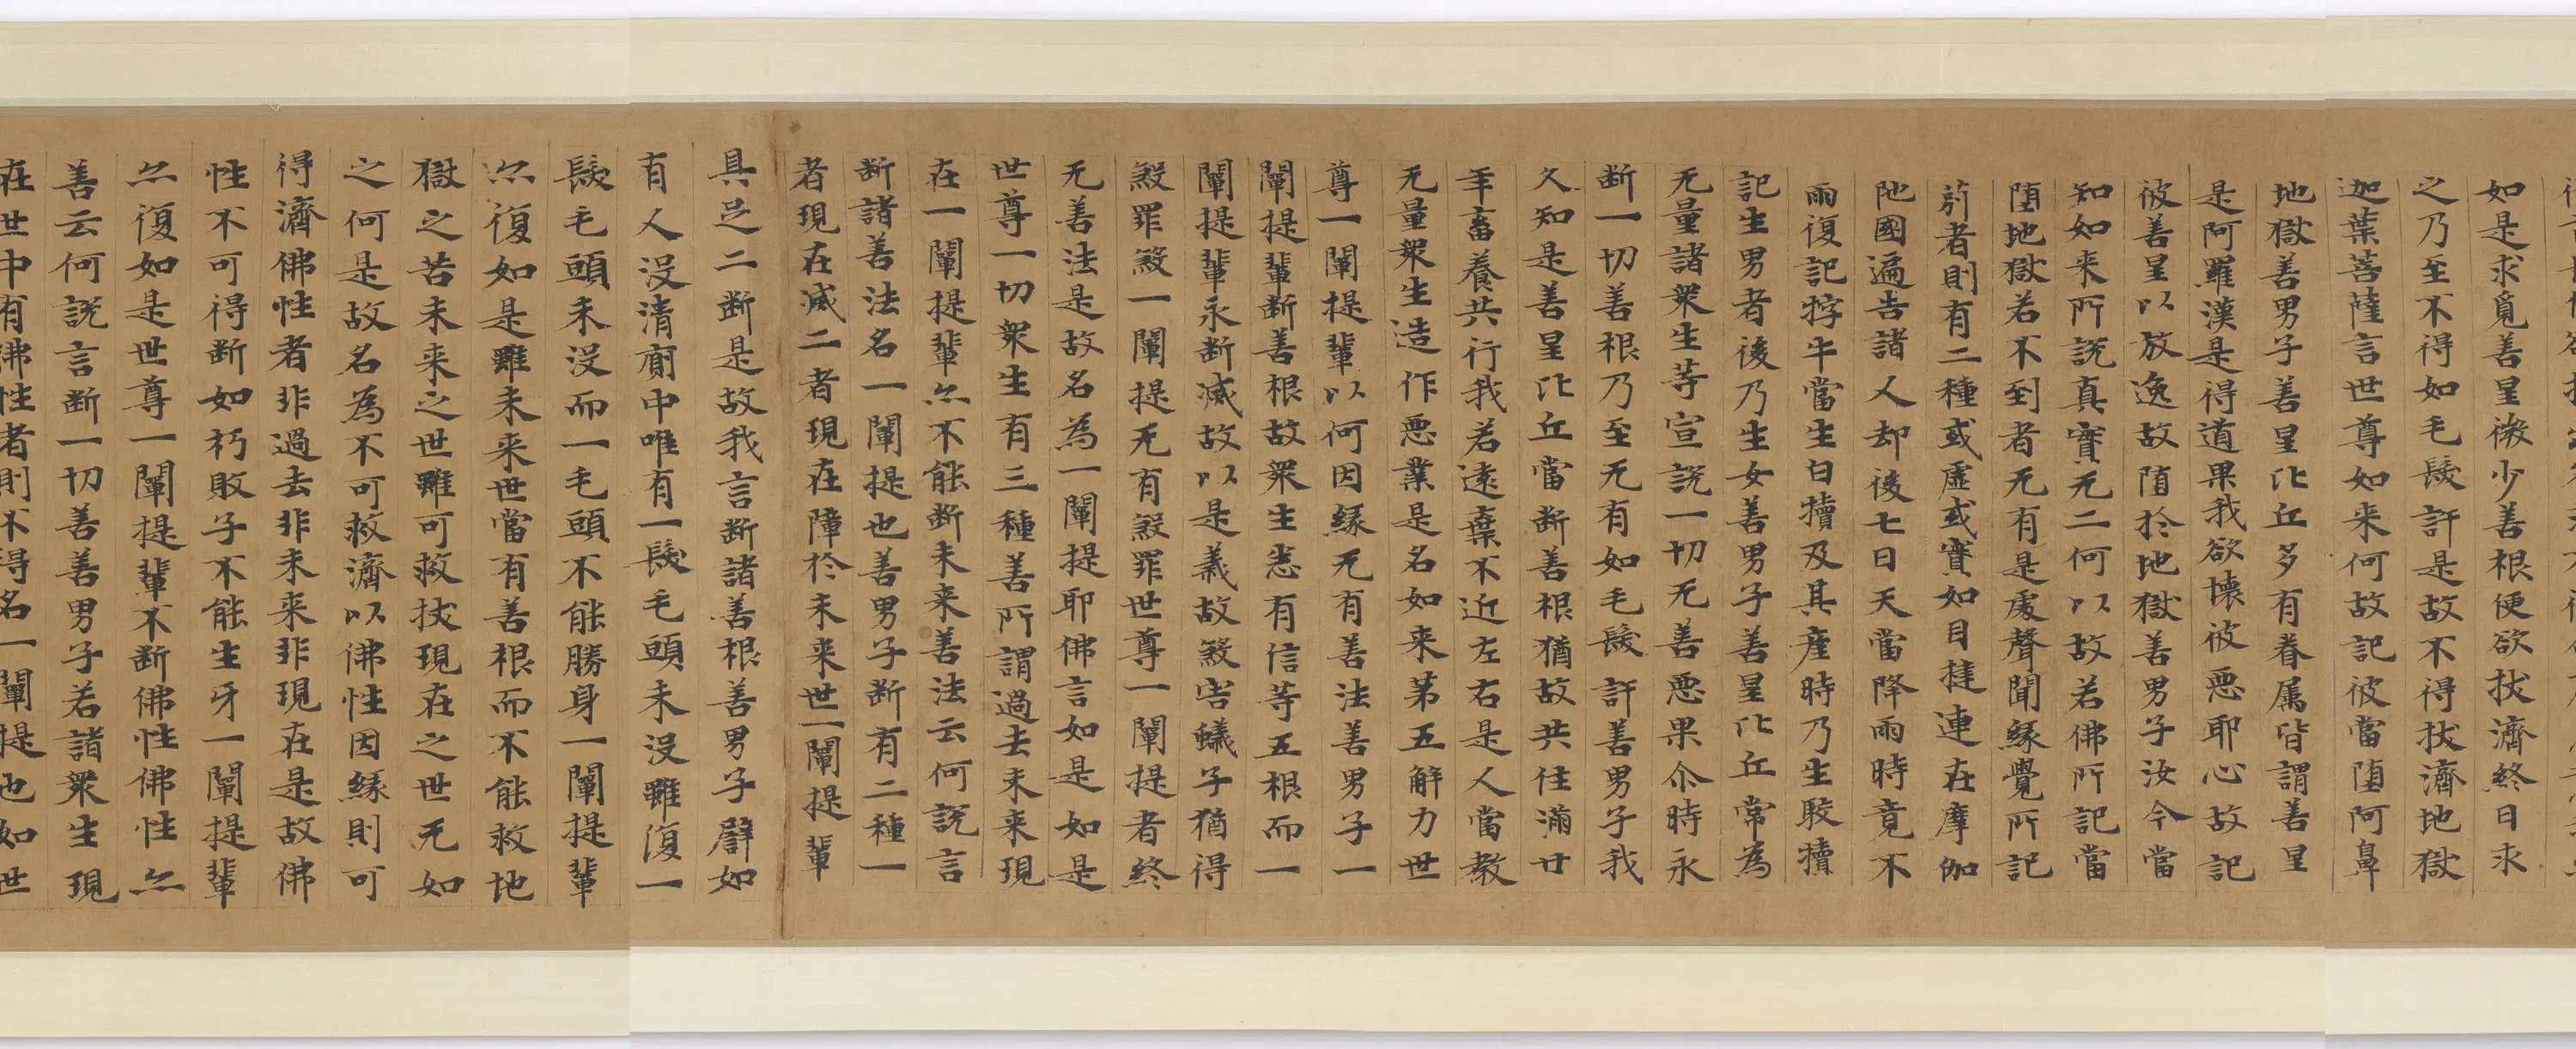 如是求覓善星微少善根便欲拔濟終日求
之乃至不得如毛髮許是故不得拔濟地獄
迦葉菩薩言世尊如来何故記彼當堕阿鼻
地獄善男子善星比丘多有眷属皆謂善星
是阿羅漢是得道果我欲壊彼悪耶心故記
彼善星以放逸故堕於地獄善男子汝今當
知如来所説真實无二何以故若佛所記當
堕地獄若不到者无有是處聲聞緣覺所記
莂者則有二種或虛或實如目揵連在摩伽
陁國遍告諸人却後七日天當降雨時竟不
雨復記牸牛當生白犢及其産時乃生駮犢
記生男者後乃生女善男子善星比丘常為
无量諸衆生等宣説一切无善悪果尒時永
断一切善根乃至无有如毛髮許善男子我
久知是善星比丘當断善根猶故共住滿廿
年畜養共行我若遠棄不近左右是人當教
无量衆生造作悪業是名如来第五解力世
尊一闡提輩以何因緣无有善法善男子一
闡提輩断善根故衆生悉有信等五根而一
闡提輩永断滅故以是義故煞害蟻子猶得
煞罪煞一闡提无有煞罪世尊一闡提者終
无善法是故名為一闡提耶佛言如是如是
世尊一切衆生有三種善所謂過去未来現
在一闡提輩亦不能断未来善法云何説言
断諸善法名一闡提也善男子断有二種一
者現在滅二者現在障於未来世一闡提輩
具足二断是故我言断諸善根善男子譬如
有人没清廁中唯有一髮毛頭未没雖復一
髮毛頭未没而一毛頭不能勝身一闡提輩
亦復如是雖未来世當有善根而不能救地
獄之苦未来之世雖可救拔現在之世无如
之何是故名為不可救濟以佛性因緣則可
得濟佛性者非過去非未来非現在是故佛
性不可得断如朽敗子不能生牙一闡提輩
亦復如是世尊一闡提輩不断佛性佛性亦
善云何説言断一切善善男子若諸衆生現
在世中有佛性者則不得名一闡提也如世